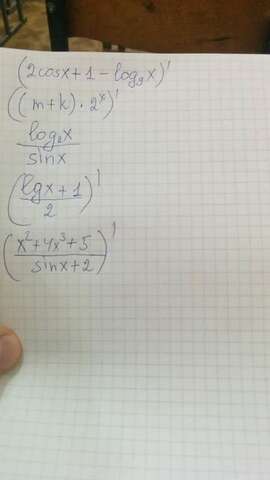 (2cosx+1-log₂x)'
((m+k)·2ˣ)'
log₂x
sinx
(lgx+1
2)'
(x²+4x³+5
sinx+2)'